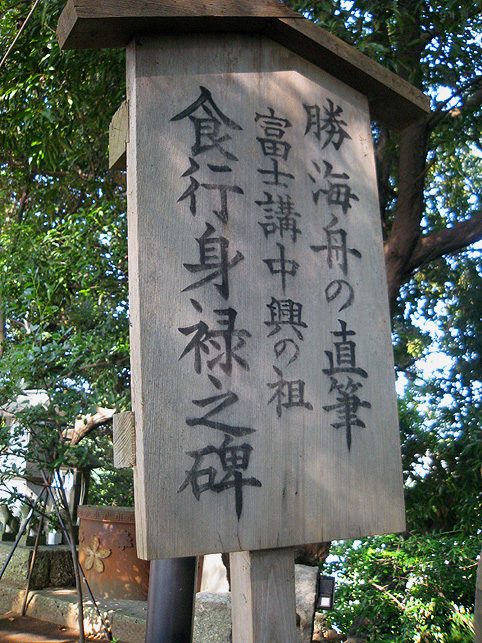 勝海舟の直筆
富士講中興の祖
食行身禄之碑